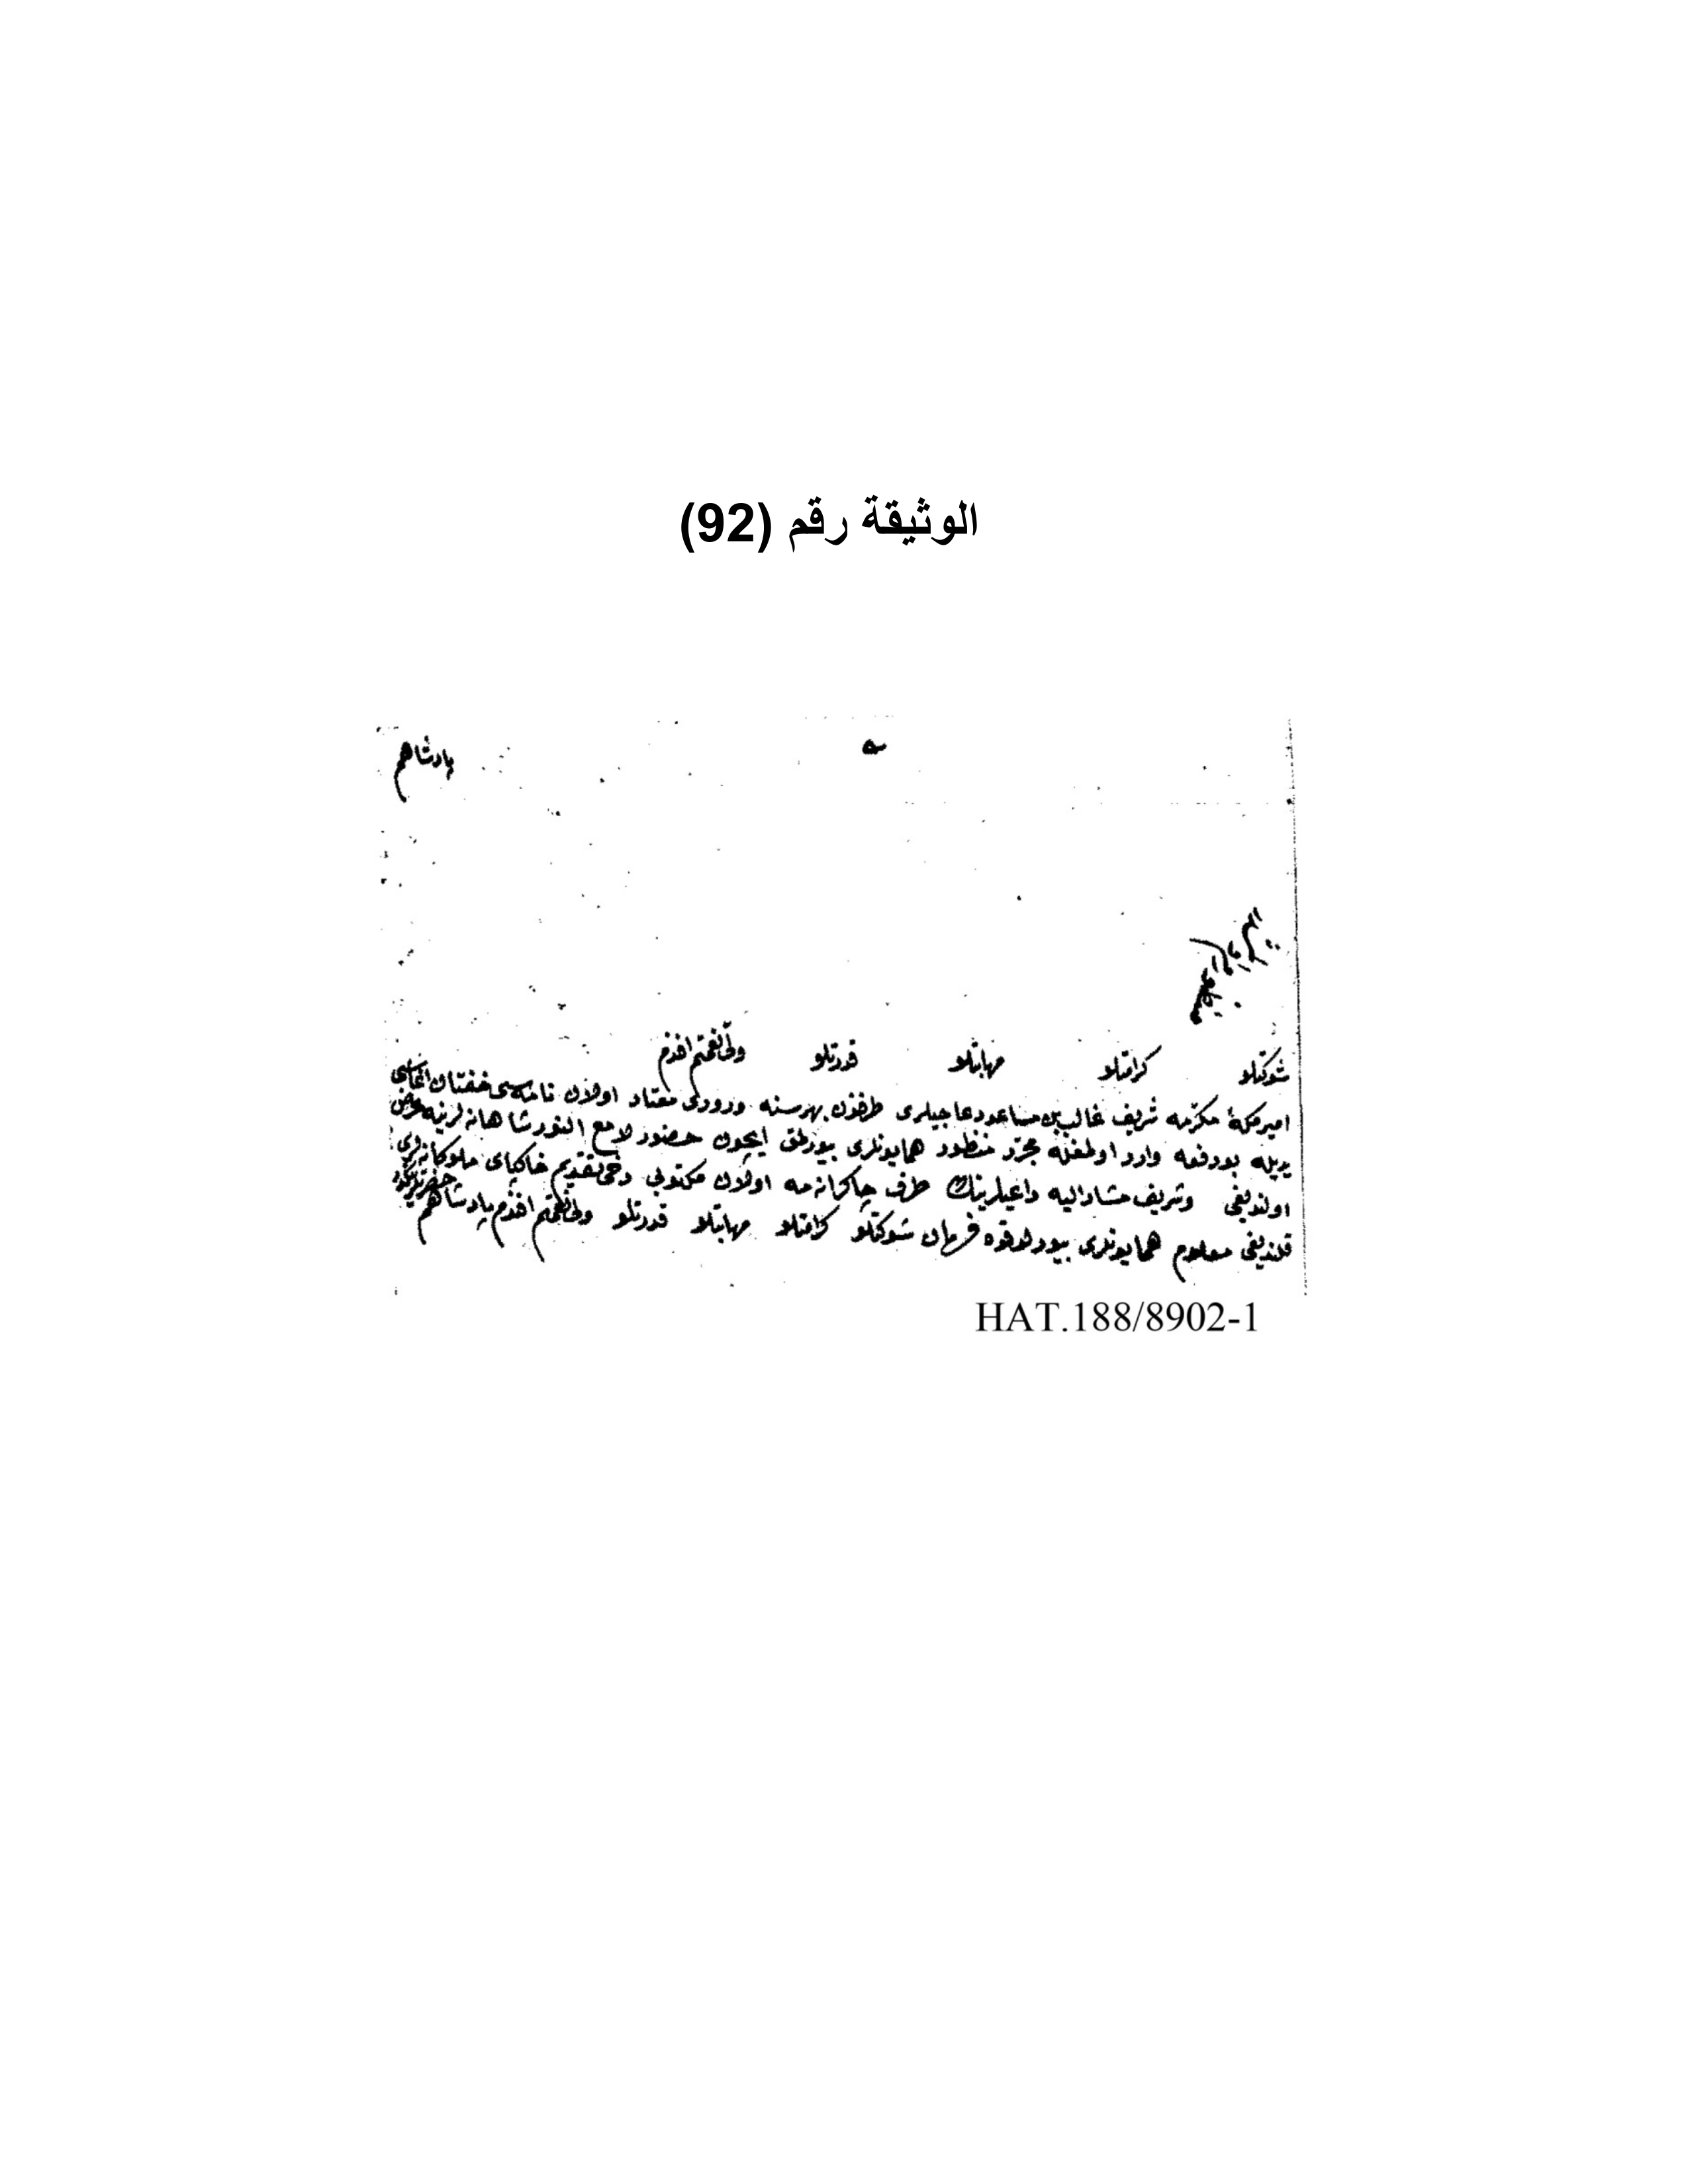 الوثيقة رقم (92)
پادشاهم
شوكتلو كرامتلو مهابتلو قدرتلو ولی نعمتم افندم
امیر مكۀ مكرّمه شریف غالب بن مساعد دعاجیلری طرفندن بهرسنه ورودی معتاد اولان نامه سی قفتان اغاسی
یدیله بودفعه وارد اولمغله مجرّد منظور همایونلری بیورلمق ایچون حضور لامع النور شاهانه لرینه عرض
اولندیغی وشریف مشار الیه داعیلرینك طرف چاكرانه مه اولان مكتوبی دخی تقدیم خاكپای ملوكانه لری
قلندیغی معلوم همایونلری بیورلدقده فرمان شوكتلو كرامتلو مهابتلو قدرتلو ولی نعمتم افندم پادشاهم حضرتلرینكدر
HAT.188/8902-1